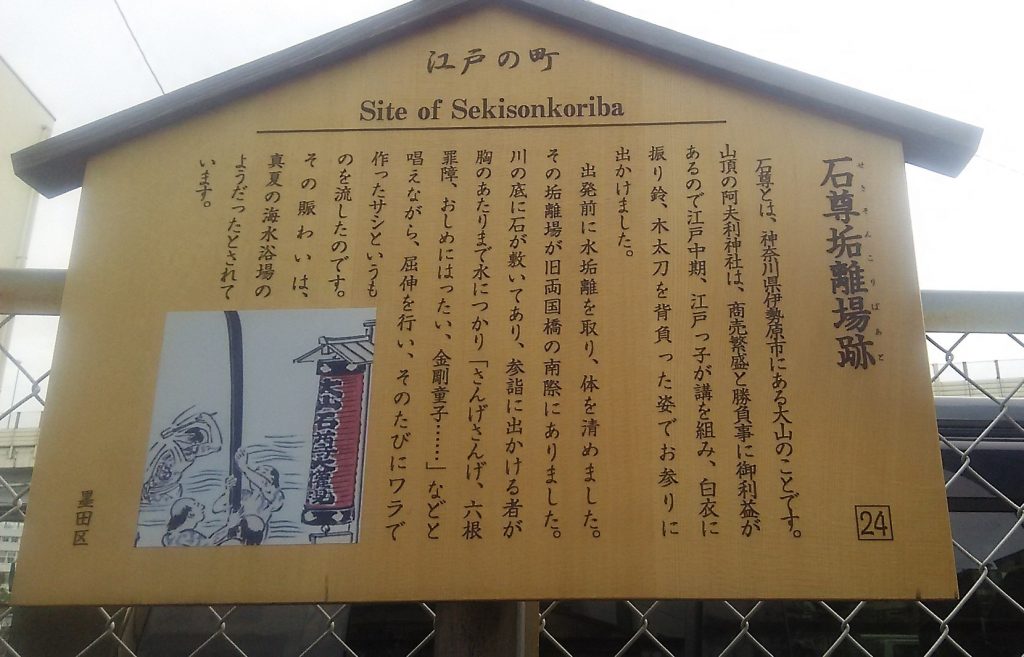 江戸の町
Site of Sekisonkoriba
石尊垢離場跡
せきそんこりばあと
石尊とは、神奈川県伊勢原市にある大山のことです。
山頂の阿夫利神社は、商売繁盛と勝負事に御利益が
あるので江戸中期、江戸っ子が講を組み、白衣に
振り鈴、木太刀を背負った姿でお参りに
出かけました。
出発前に水垢離を取り、体を清めました。
その垢離場が旧両国橋の南際にありました。
川の底に石が敷いてあり、参詣に出かける者が
胸のあたりまで水につかり「さんげさんげ、六根
罪障、おしめにはったい、金剛童子……」などと
唱えながら、屈伸を行い、そのたびにワラで
作ったサシというも
のを流したのです。
その賑わいは、
真夏の海水浴場の
ようだったとされて
います。
24
大山石尊大権現
墨田区